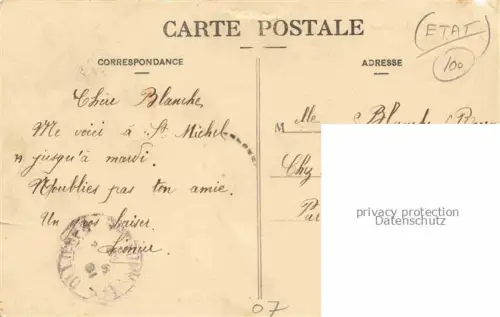 CARTE POSTALE
(ETAT)
100
CORRESPONDANCE
ADRESSE
Chère Blanche,
Me voici à St Michel
jusqu'à mardi.
N'oublies pas ton amie.
Un gros baiser.
Mlle Blanche
Chez
privacy protection
Datenschutz
07